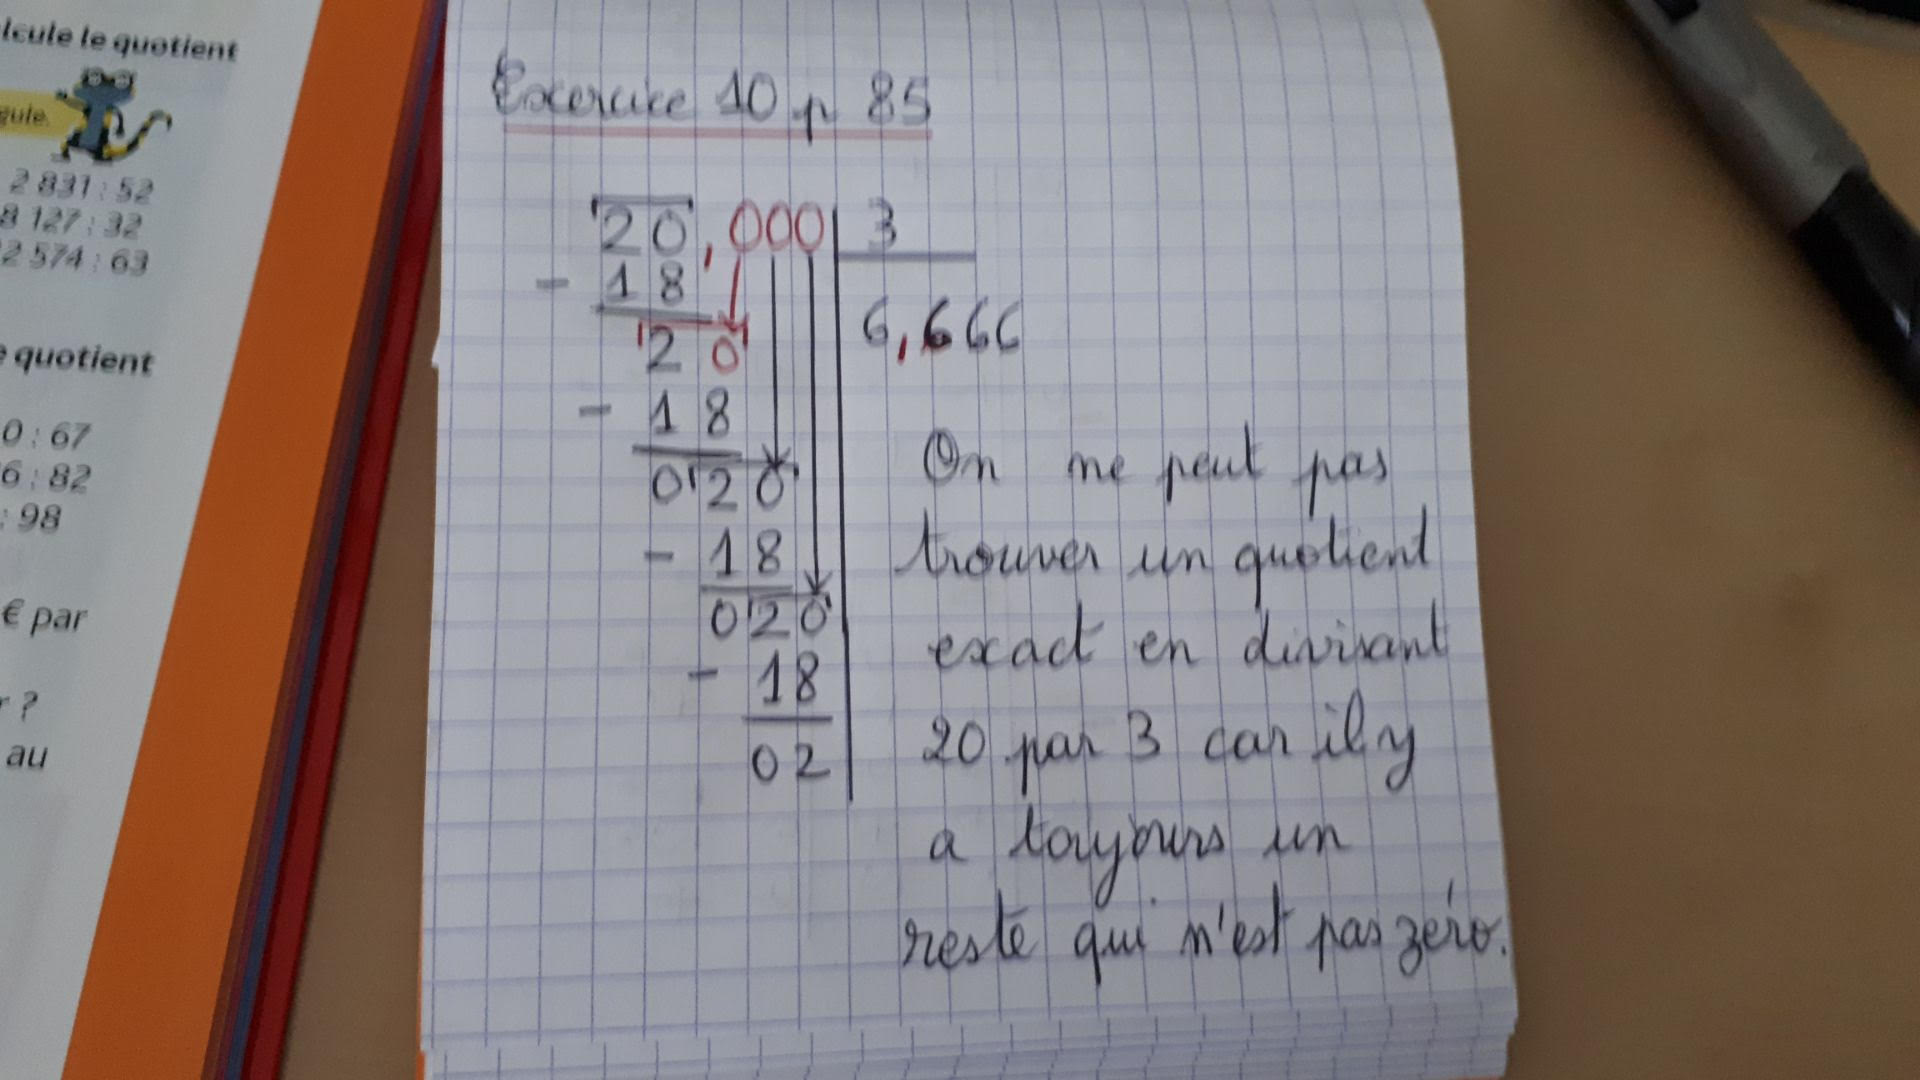 lcule le quotient
gule.
2 831 : 52
8 127 : 32
2 574 : 63
quotient
0 : 67
6 : 82
: 98
€ par
r ?
au
Exercice 10 p 85
20,000 3
- 18
2 0 6,666
- 18
020
- 18
020
- 18
02
On ne peut pas
trouver un quotient
exact en divisant
20 par 3 car il y
a toujours un
reste qui n'est pas zéro.